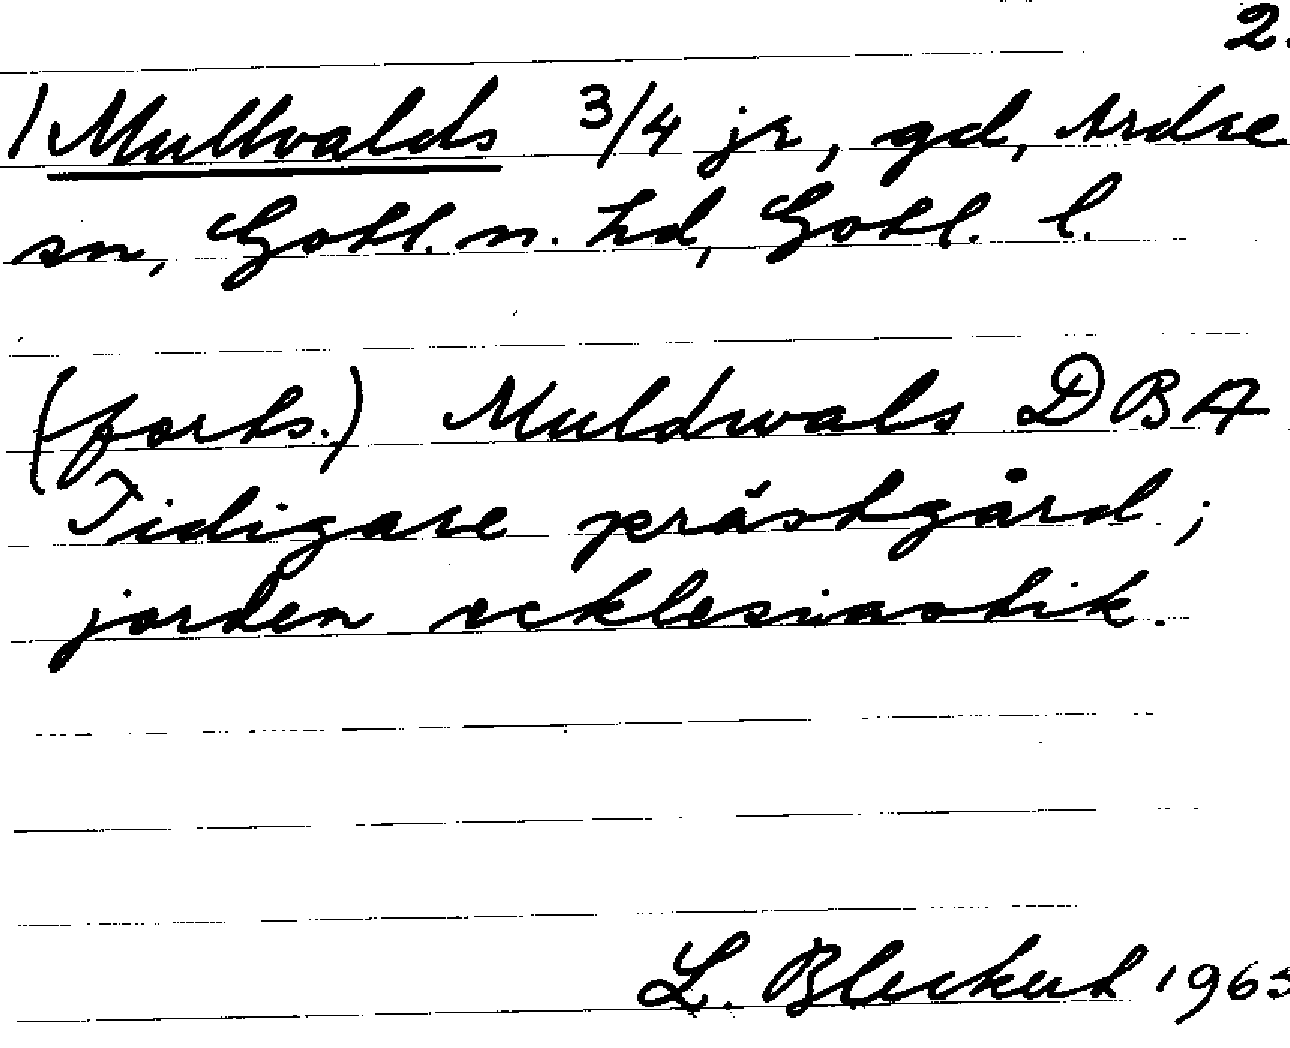 2.
1 Mullvalds 3/4 jr, gd, Ardre
sn, Gotl. n. hd, Gotl. l.
(forts.) Muldwals DBA
Tidigare prästgård;
jorden ecklesiastik.
L. Bleckert 1963